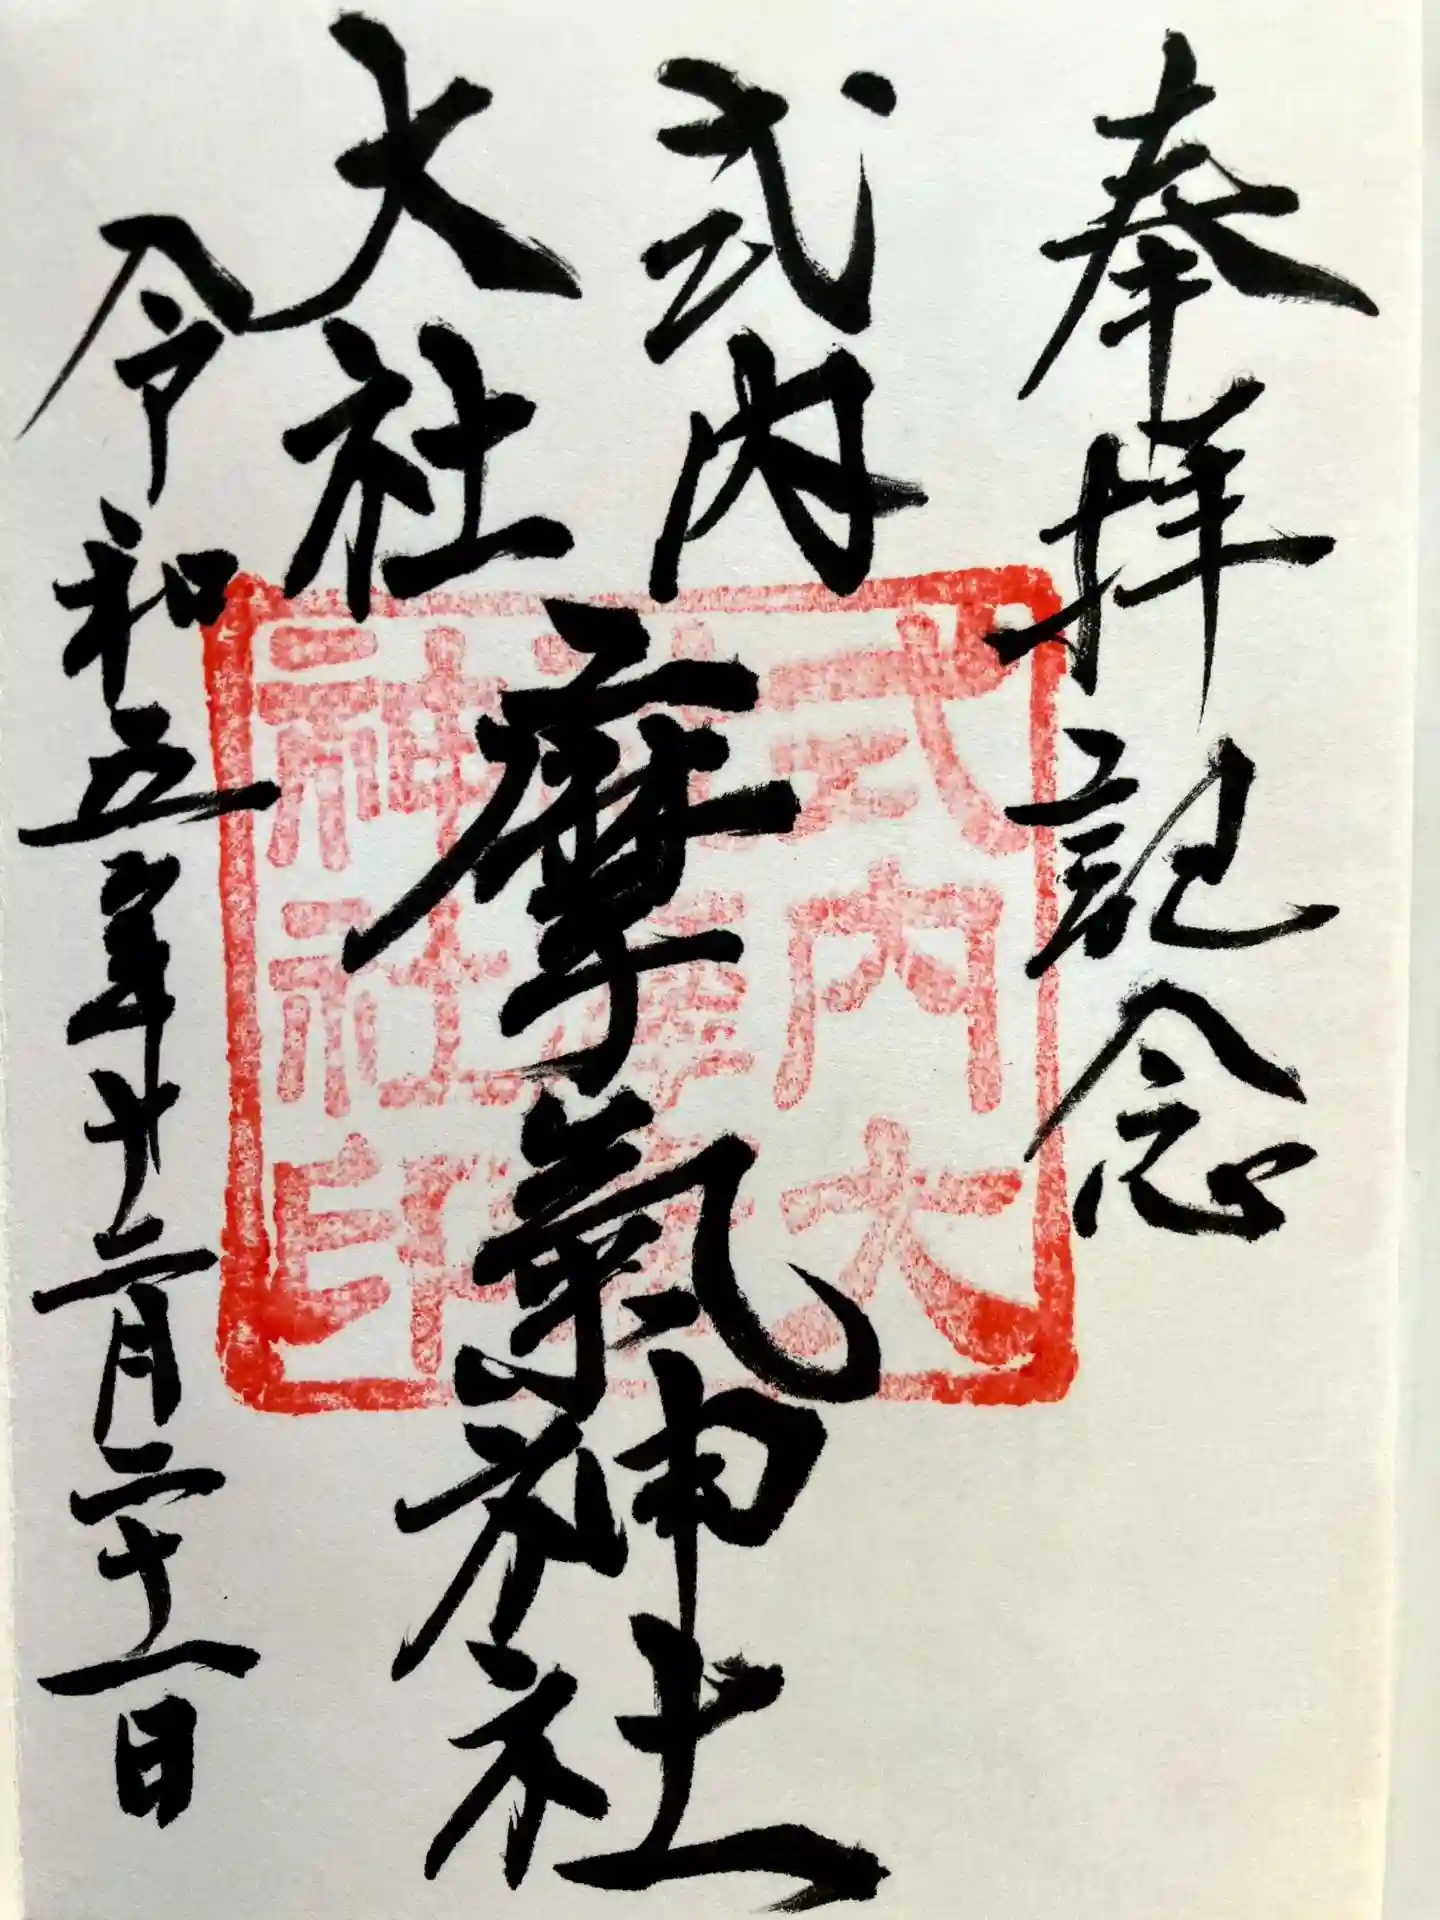 奉拝記念
式内
大社
摩氣神社
令和五年十二月二十一日
式内大
社印
神社印